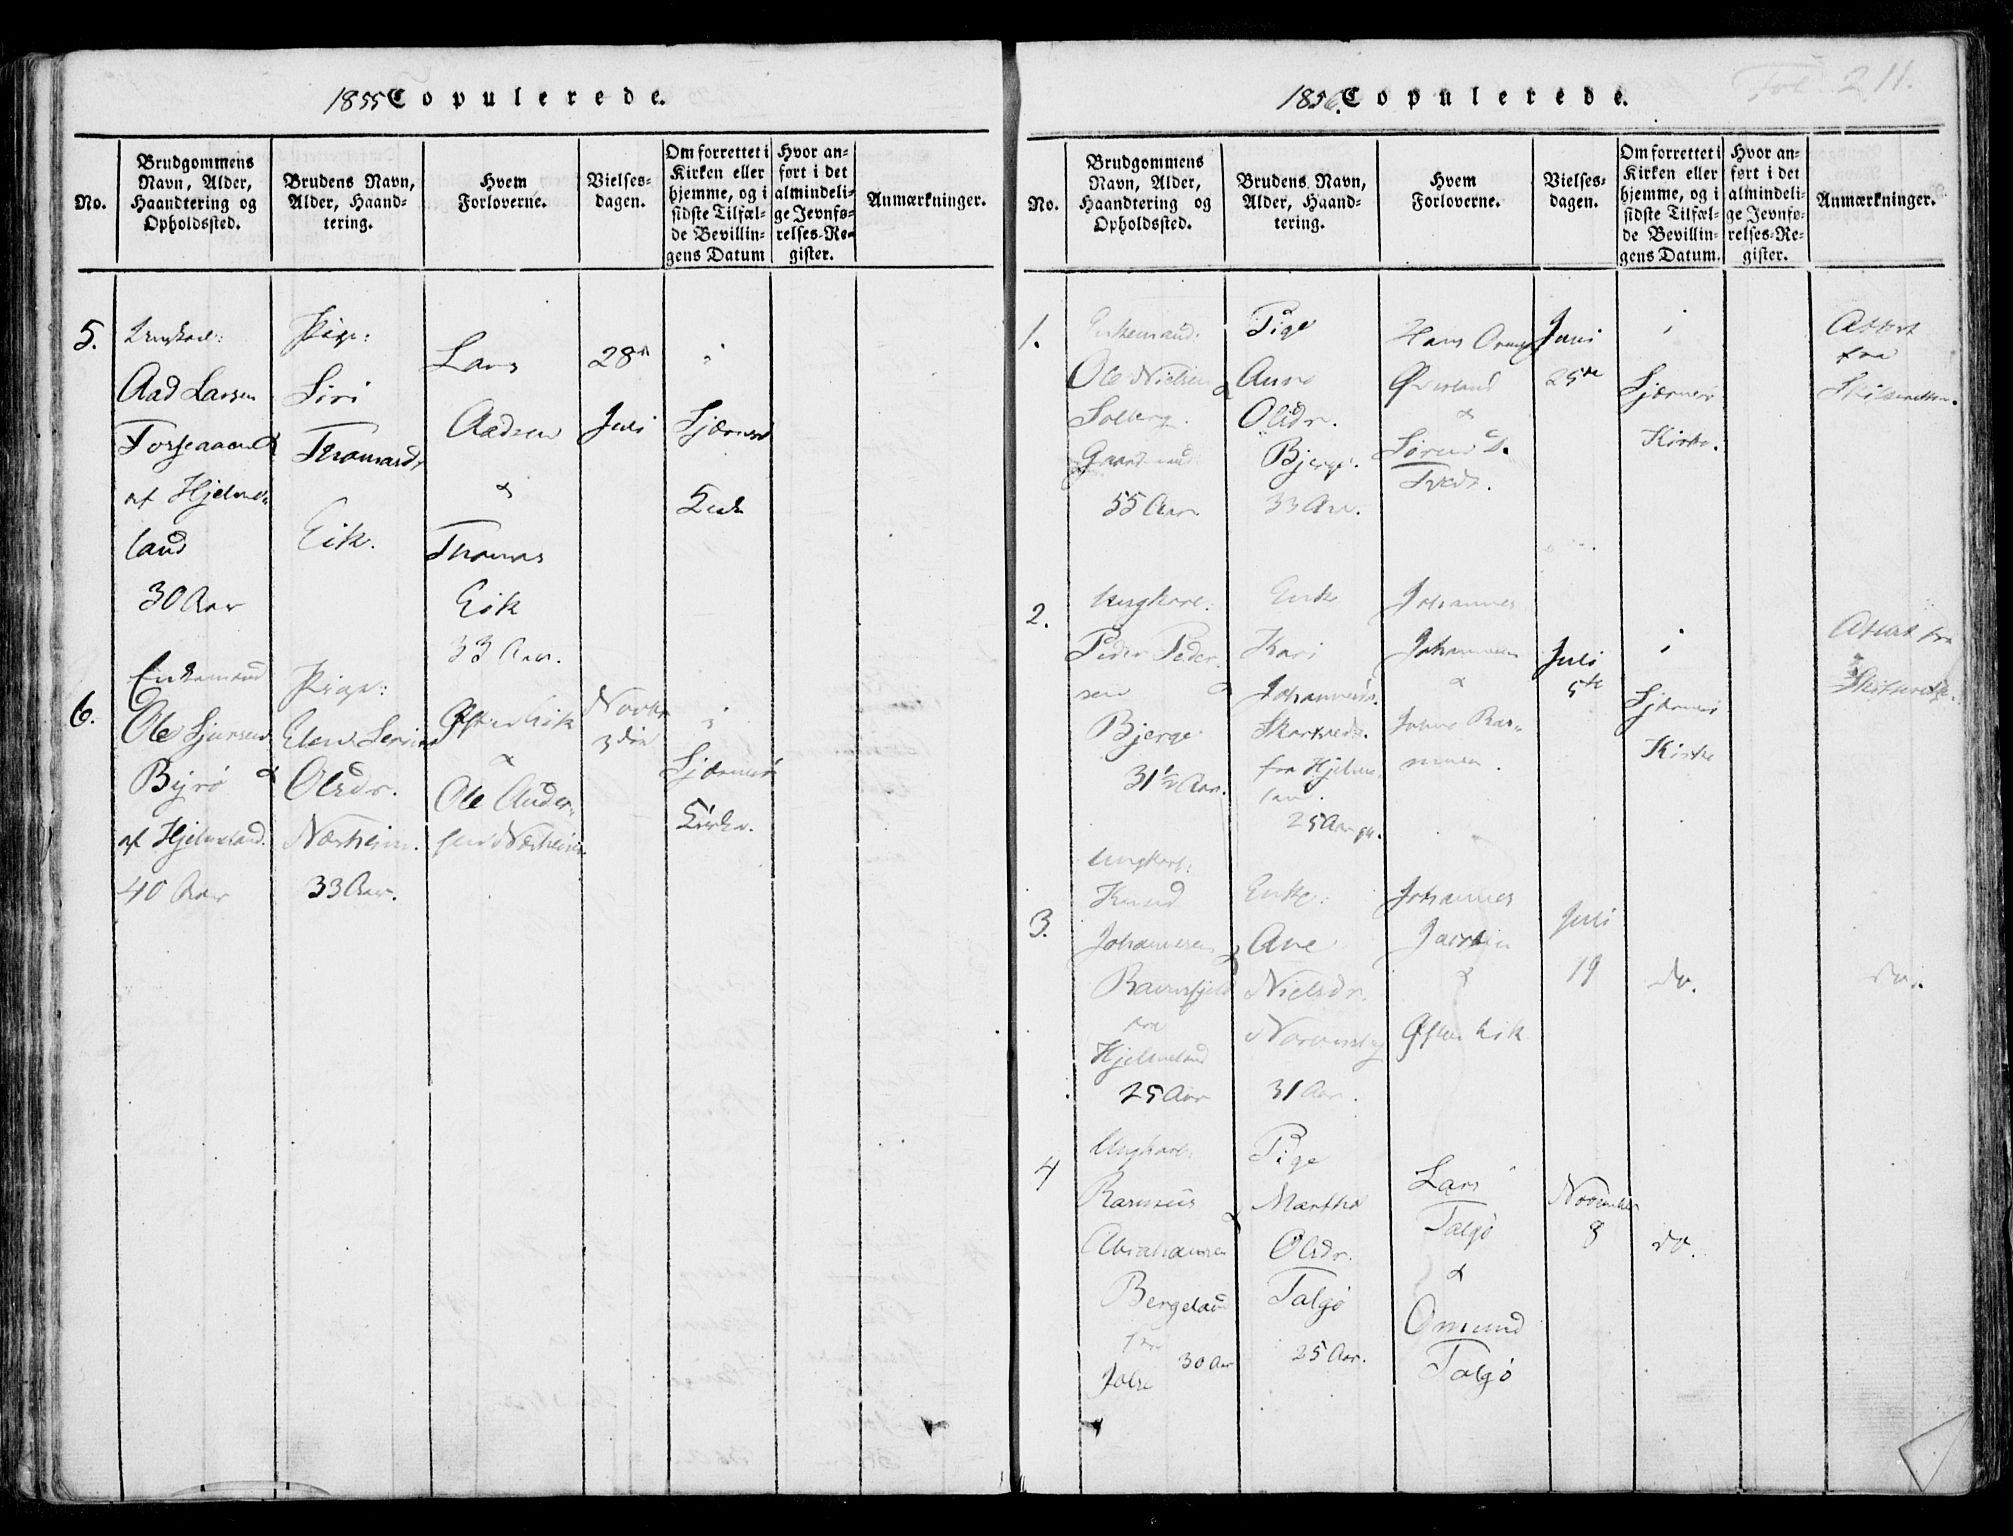 1855 Copulerede.
No.
Brudgommens
Navn, Alder,
Haandtering og
Opholdssted.
Brudens Navn,
Alder, Haand-
tering.
Hvem
Forloverne.
Vielses-
dagen.
Om forrettet i
Kirken eller
hjemme, og i
sidste Tilfæl-
de Bevillin-
gens Datum
Hvor an-
ført i det
almindeli-
ge Jevnfø-
relses-Re-
gister.
Anmærkninger.
5.
Ungkarl:
Aad Larsen
&
af Hjelme-
land
30 Aar
Pige:
Siri
Thomasdr
Eik.
Lars
Aadsen
&
Thomas
Eik
33 Aar.
28de
Juli
i
Sjærnerø
Kirke
6.
Enkemand
Ole Sjursen
Byrø &
af Hjelmeland.
40 Aar
Pige:
Olsdr.
Nærheim.
33 Aar.
Østen Eik
&
Ole Ander-
sen Nærheim
Novbr
3die
i
Sjærnerø
Kirke.
1856. Copulerede.
Fol. 211.
No.
Brudgommens
Navn, Alder,
Haandtering og
Opholdssted.
Brudens Navn,
Alder, Haand-
tering.
Hvem
Forloverne.
Vielses-
dagen.
Om forrettet i
Kirken eller
hjemme, og i
sidste Tilfæl-
de Bevillin-
gens Datum.
Hvor an-
ført i det
almindeli-
ge Jevnfø-
relses-Re-
gister.
Anmærkninger.
1.
Enkemand:
Ole Nielsen &
Solberg.
Gaardmand
55 Aar
Pige
Anne
Olsdr.
Bjerge.
33 Aar.
Hans
Øverland
&
Søren
Tvedt.
Juni
25de
i
Sjærnerø
Kirke.
Attest
fra
Skifteretten.
2.
Ungkarl:
Peder Peder-
sen &
Bjerge
31½ Aar.
Enke
Kari
Johannesd.
fra Hjelme-
land.
25 Aar gl.
Johannes
Johannesen
&
Johns Ras-
musen.
Juli
5te
i
Sjærnerø
Kirke
Attest fra
Skifteretten.
3.
Ungkarl:
Knud
Johannesen &
fra
Hjelmeland
25 Aar
Enke:
Ane
Nielsdr.
31 Aar.
Johannes
&
Østen Eik
Juli
19
do.
do.
4
Ungkarl:
Rasmus &
Abrahamsen
Bergeland
fra
Jelse
30 Aar
Pige
Martha
Olsdr.
Talgø
25 Aar.
Lars
Talgø
&
Omund
Talgø
November
8
do.